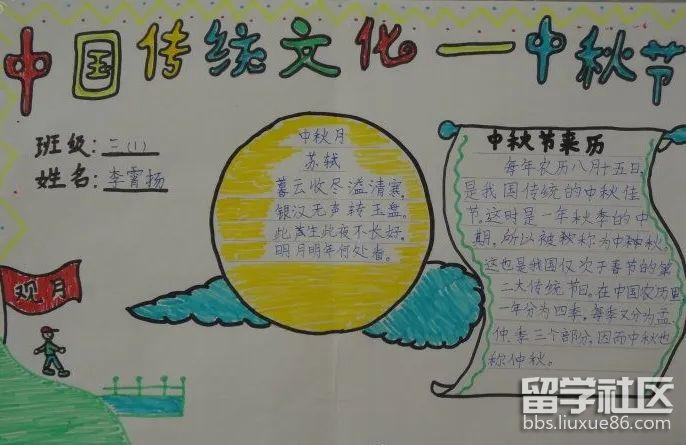 中国传统文化—中秋节
班级:三(1)
姓名:李霄扬
观月
中秋月
苏轼
暮云收尽溢清寒,
银汉无声转玉盘。
此生此夜不长好,
明月明年何处看。
中秋节来历
每年农历八月十五日,
是我国传统的中秋佳
节。这时是一年秋季的中
期,所以被称为中秋
这也是我国仅次于春节的第
二大传统节日。在中国农历里
一年分为四季,每季又分为孟
仲、季三个部分,因而中秋也
称仲秋。
留学社区
bbs.liuxue86.com